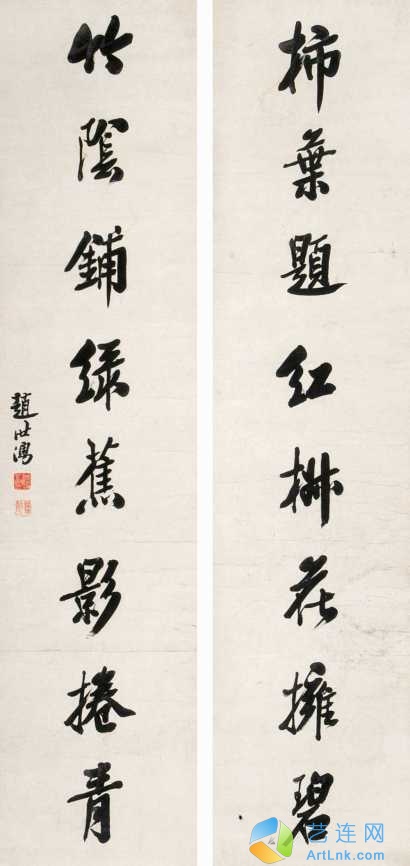 柿葉題紅柳花擁碧
竹陰鋪綠蕉影捲青
趙世鴻
艺连网
ArtLnk.Com